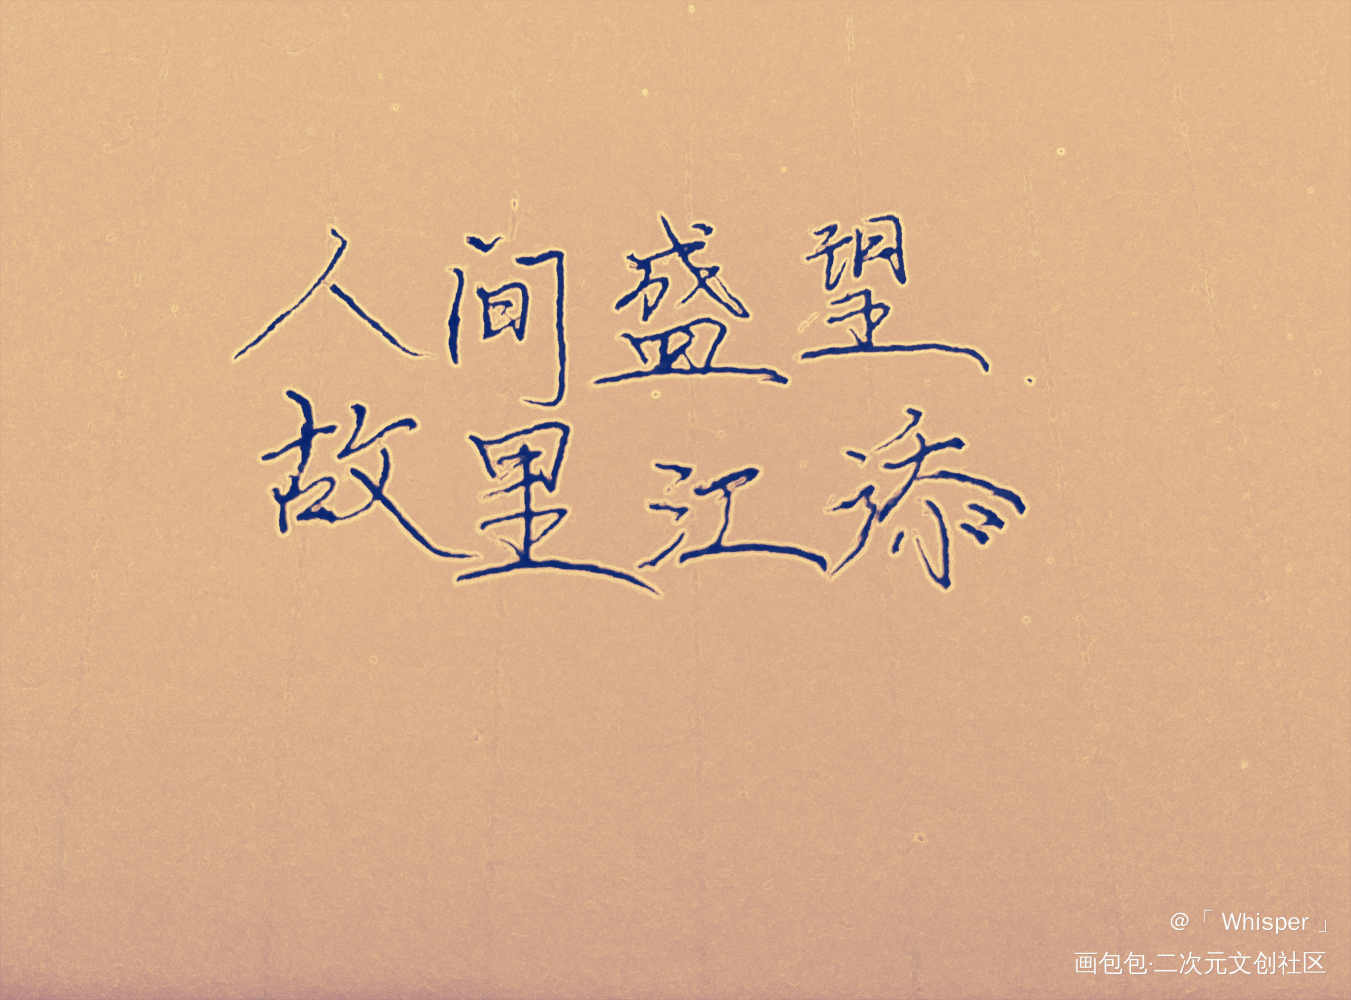 人间盛望
故里江添
@「 Whisper 」
画包包·二次元文创社区